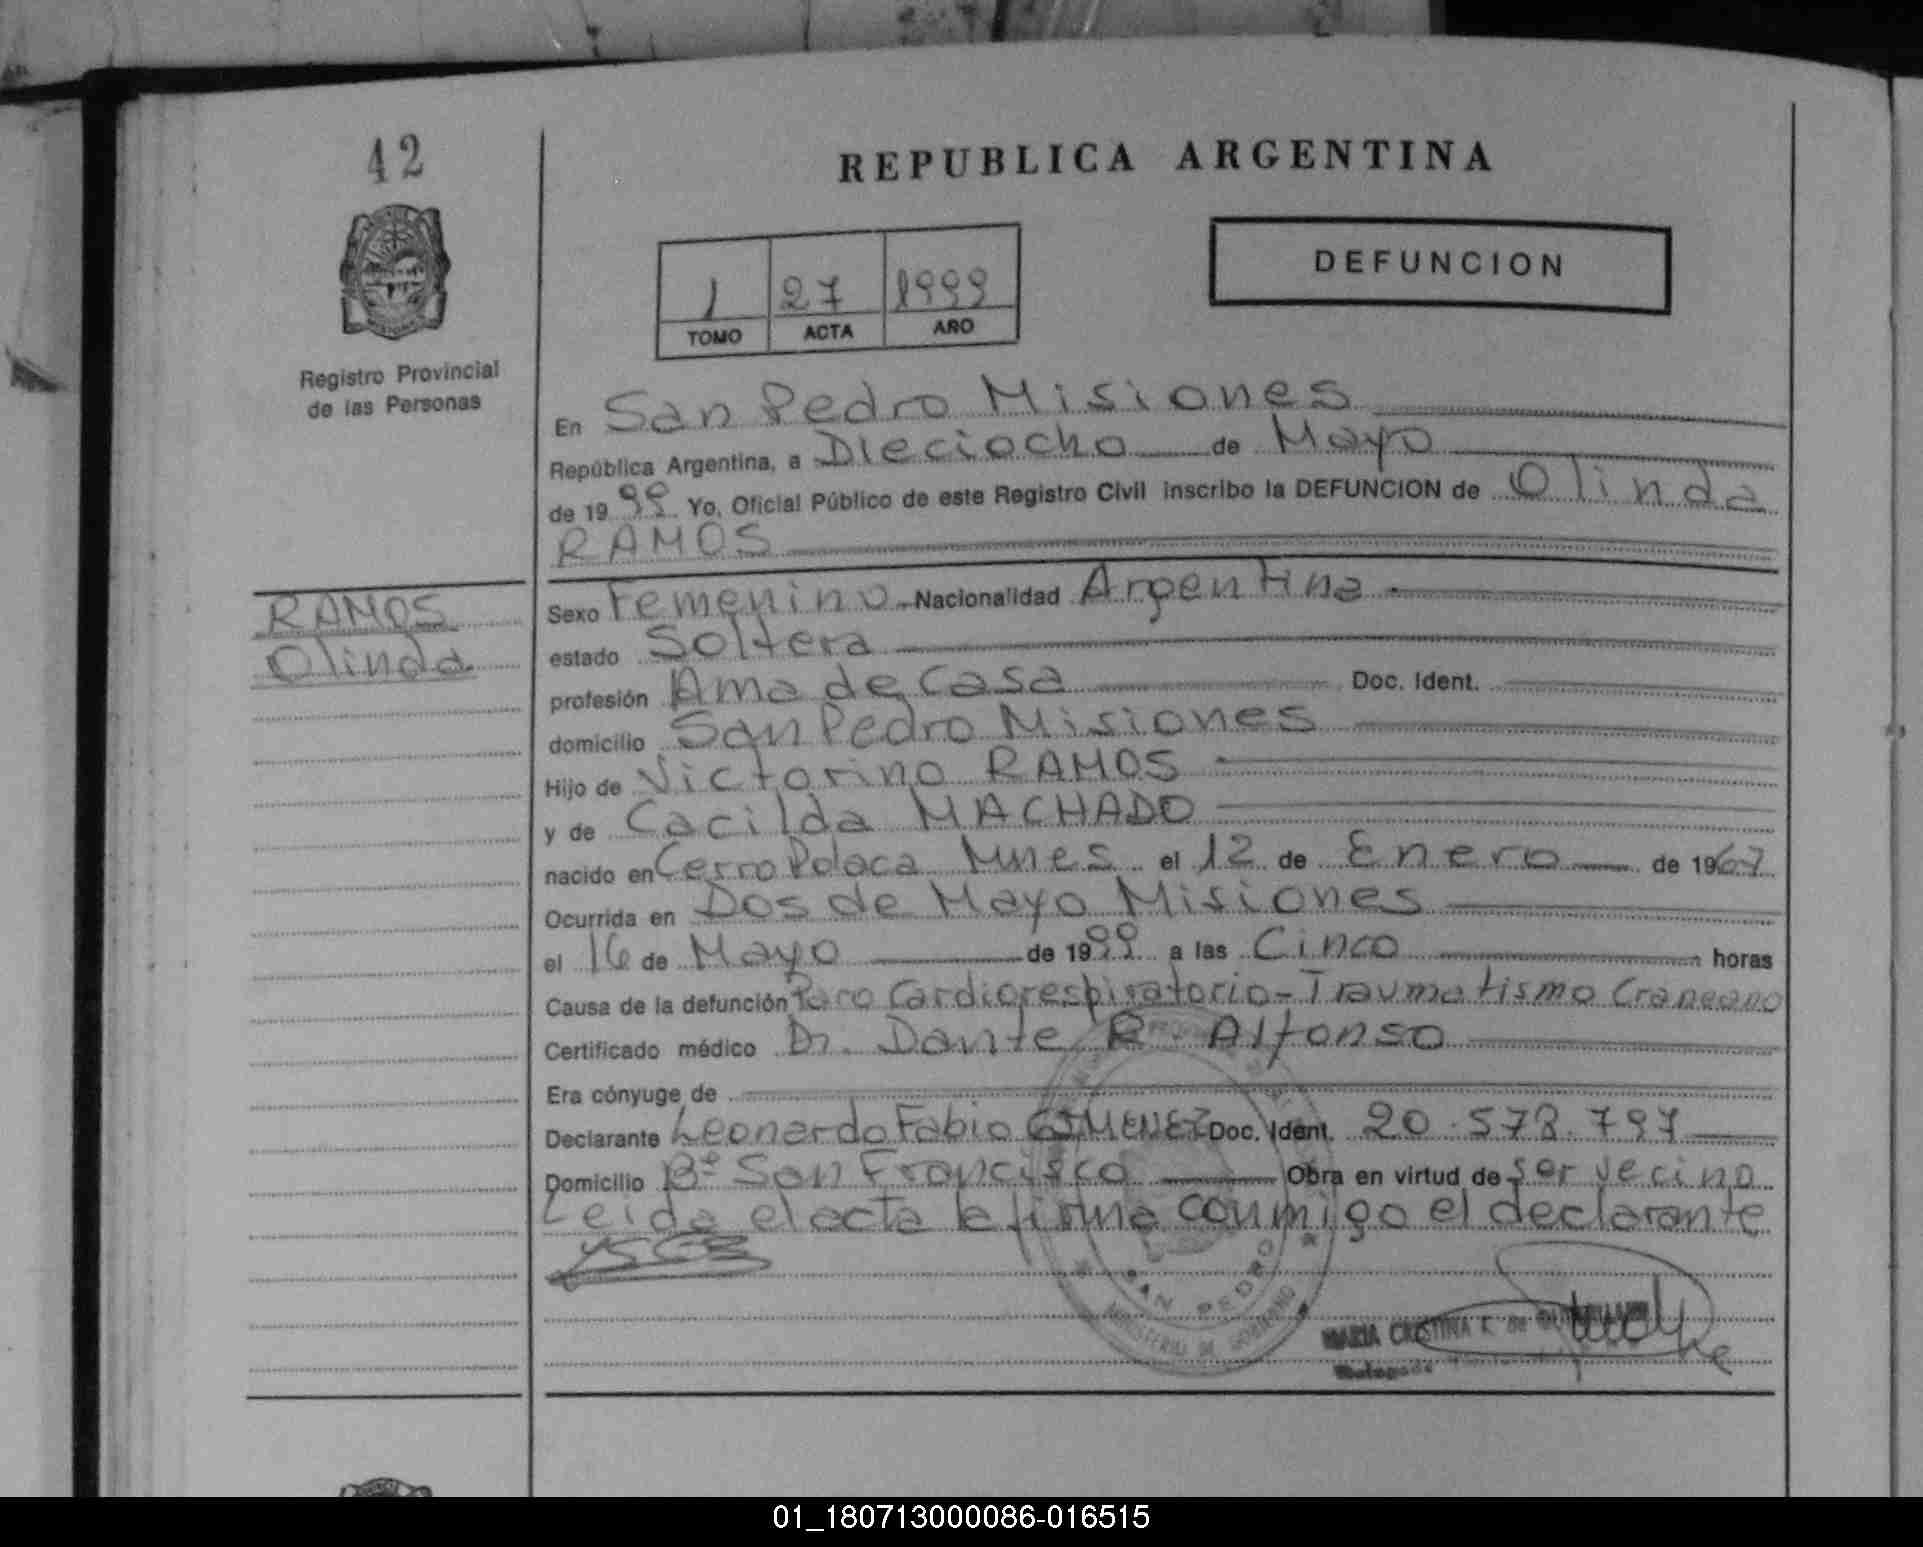 42
REPUBLICA ARGENTINA
DEFUNCION
1 27 1999
TOMO ACTA AÑO
Registro Provincial
de las Personas
En San Pedro Misiones
República Argentina, a Dieciocho de Mayo
de 1999 Yo, Oficial Público de este Registro Civil inscribo la DEFUNCION de Olinda
RAMOS
RAMOS
Olinda
Sexo Femenino Nacionalidad Argentina
estado Soltera
profesión Ama de Casa Doc. Ident.
domicilio San Pedro Misiones
Hijo de Victorino RAMOS
y de Cacilda MACHADO
nacido en Cerro Polaca Mnes el 12 de Enero de 1967
Ocurrida en Dos de Mayo Misiones
el 16 de Mayo de 1999 a las Cinco horas
Causa de la defunción Paro Cardiorespiratorio - Traumatismo Craneano
Certificado médico Dr. Dante R. Alfonso
Era cónyuge de
Declarante Leonardo Fabio GIMENEZ Doc. Ident. 20.578.797
Domicilio Bº San Francisco Obra en virtud de ser vecino
Leida el acta la firma conmigo el declarante
SAN PEDRO
MINISTERIO DE GOBIERNO
MARIA CRISTINA R. de
01_180713000086-016515